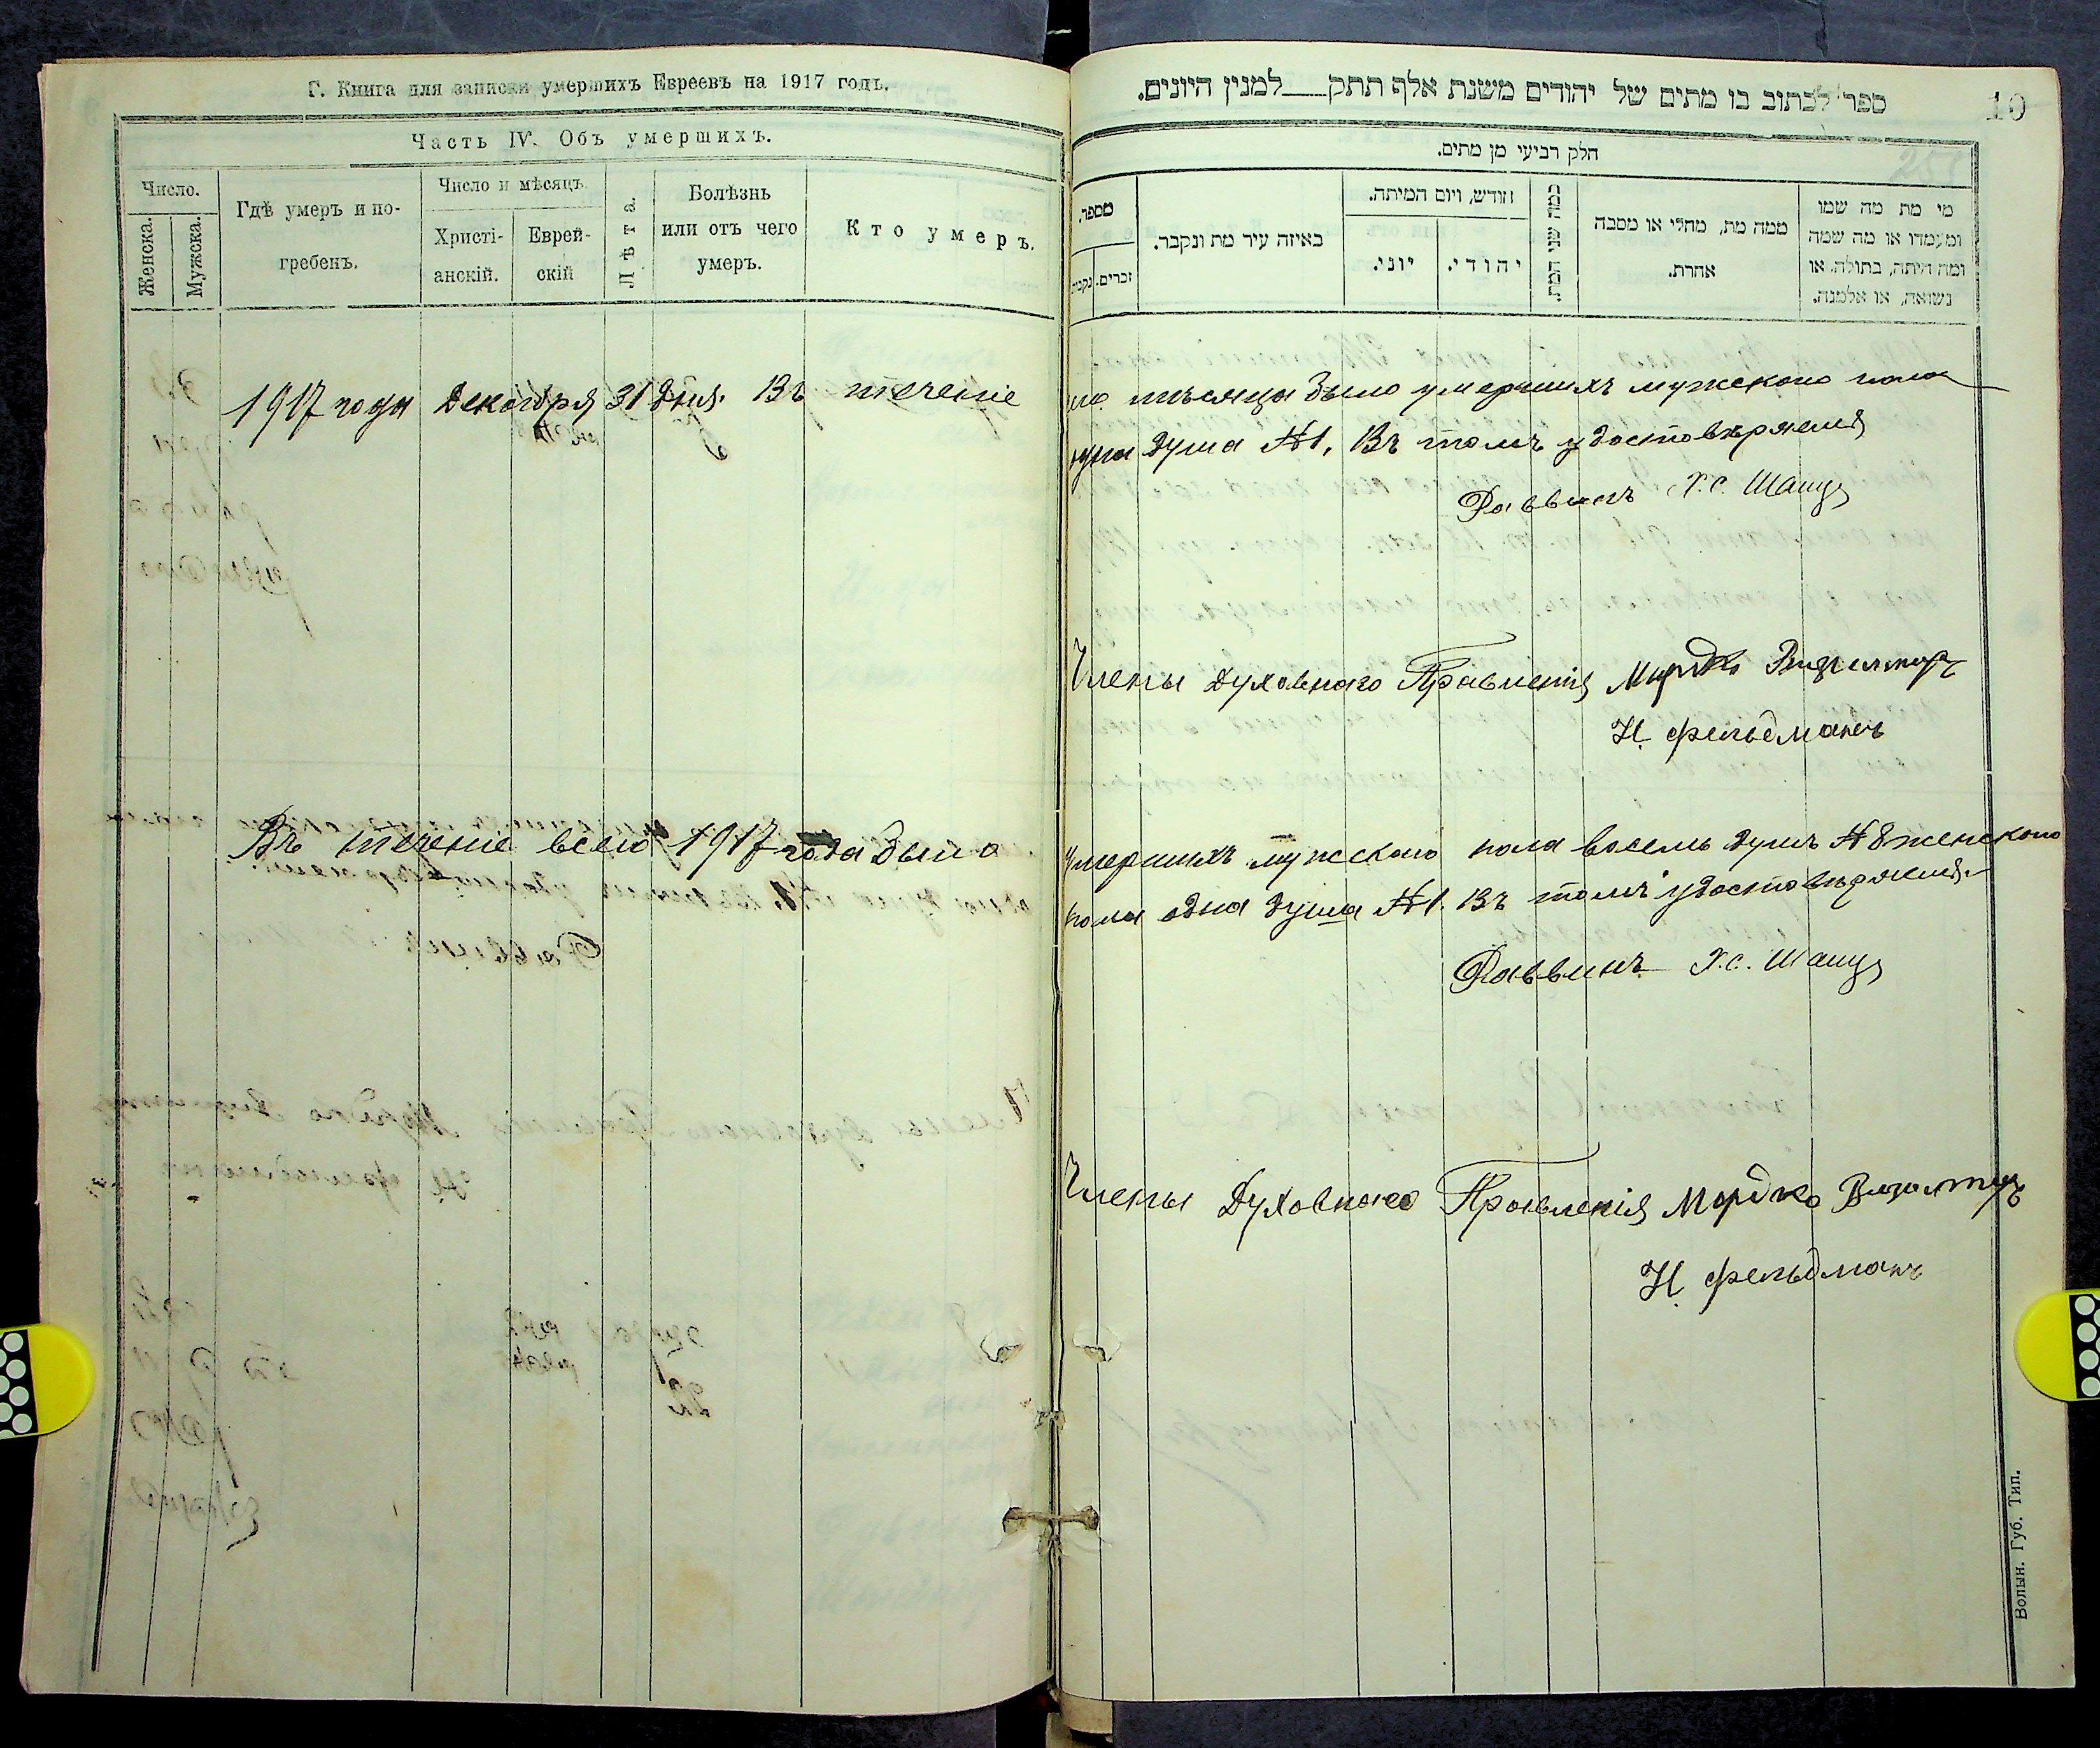 Г. Книга для записки умершихъ Евреевъ на 1917 годъ.
Часть IV. Объ умершихъ.
Число.
Женска.
Мужска.
Гдѣ умеръ и по-
гребенъ.
Число и мѣсяцъ.
Христі-
анскій.
Еврей-
скій
Лѣта.
Болѣзнь
или отъ чего
умеръ.
Кто умеръ.
ספר לכתוב בו מתים של יהודים משנת אלף תתק למנין היונים.
10
חלק רביעי מן מתים.
מספר.
זכרים.
נקבות
באיזה עיר מת ונקבר.
חודש, ויום המיתה.
יהודי.
יוני.
כמה שני המת.
ממה מת, מחלי או מסבה
אחרת.
מי מת מה שמו
ומעמדו או מה שמה
ומה היתה, בתולה, או
נשואה, או אלמנה.
1917 года Декабря 31 дня. Въ теченіе мѣсяца было умершихъ мужского пола
душа №1. Въ томъ удостовѣряемъ
Раввинъ Х.С. Шацъ
Члены Духовнаго Правленія Мордко
Н. Фельдманъ
Въ теченіе всего 1917 года было умершихъ мужского пола восемь душъ №8 женского
пола одна душа №1. Въ томъ удостовѣряемъ
Раввинъ Х.С. Шацъ
Члены Духовнаго Правленія Мордко
Н. Фельдманъ
Волын. Губ. Тип.